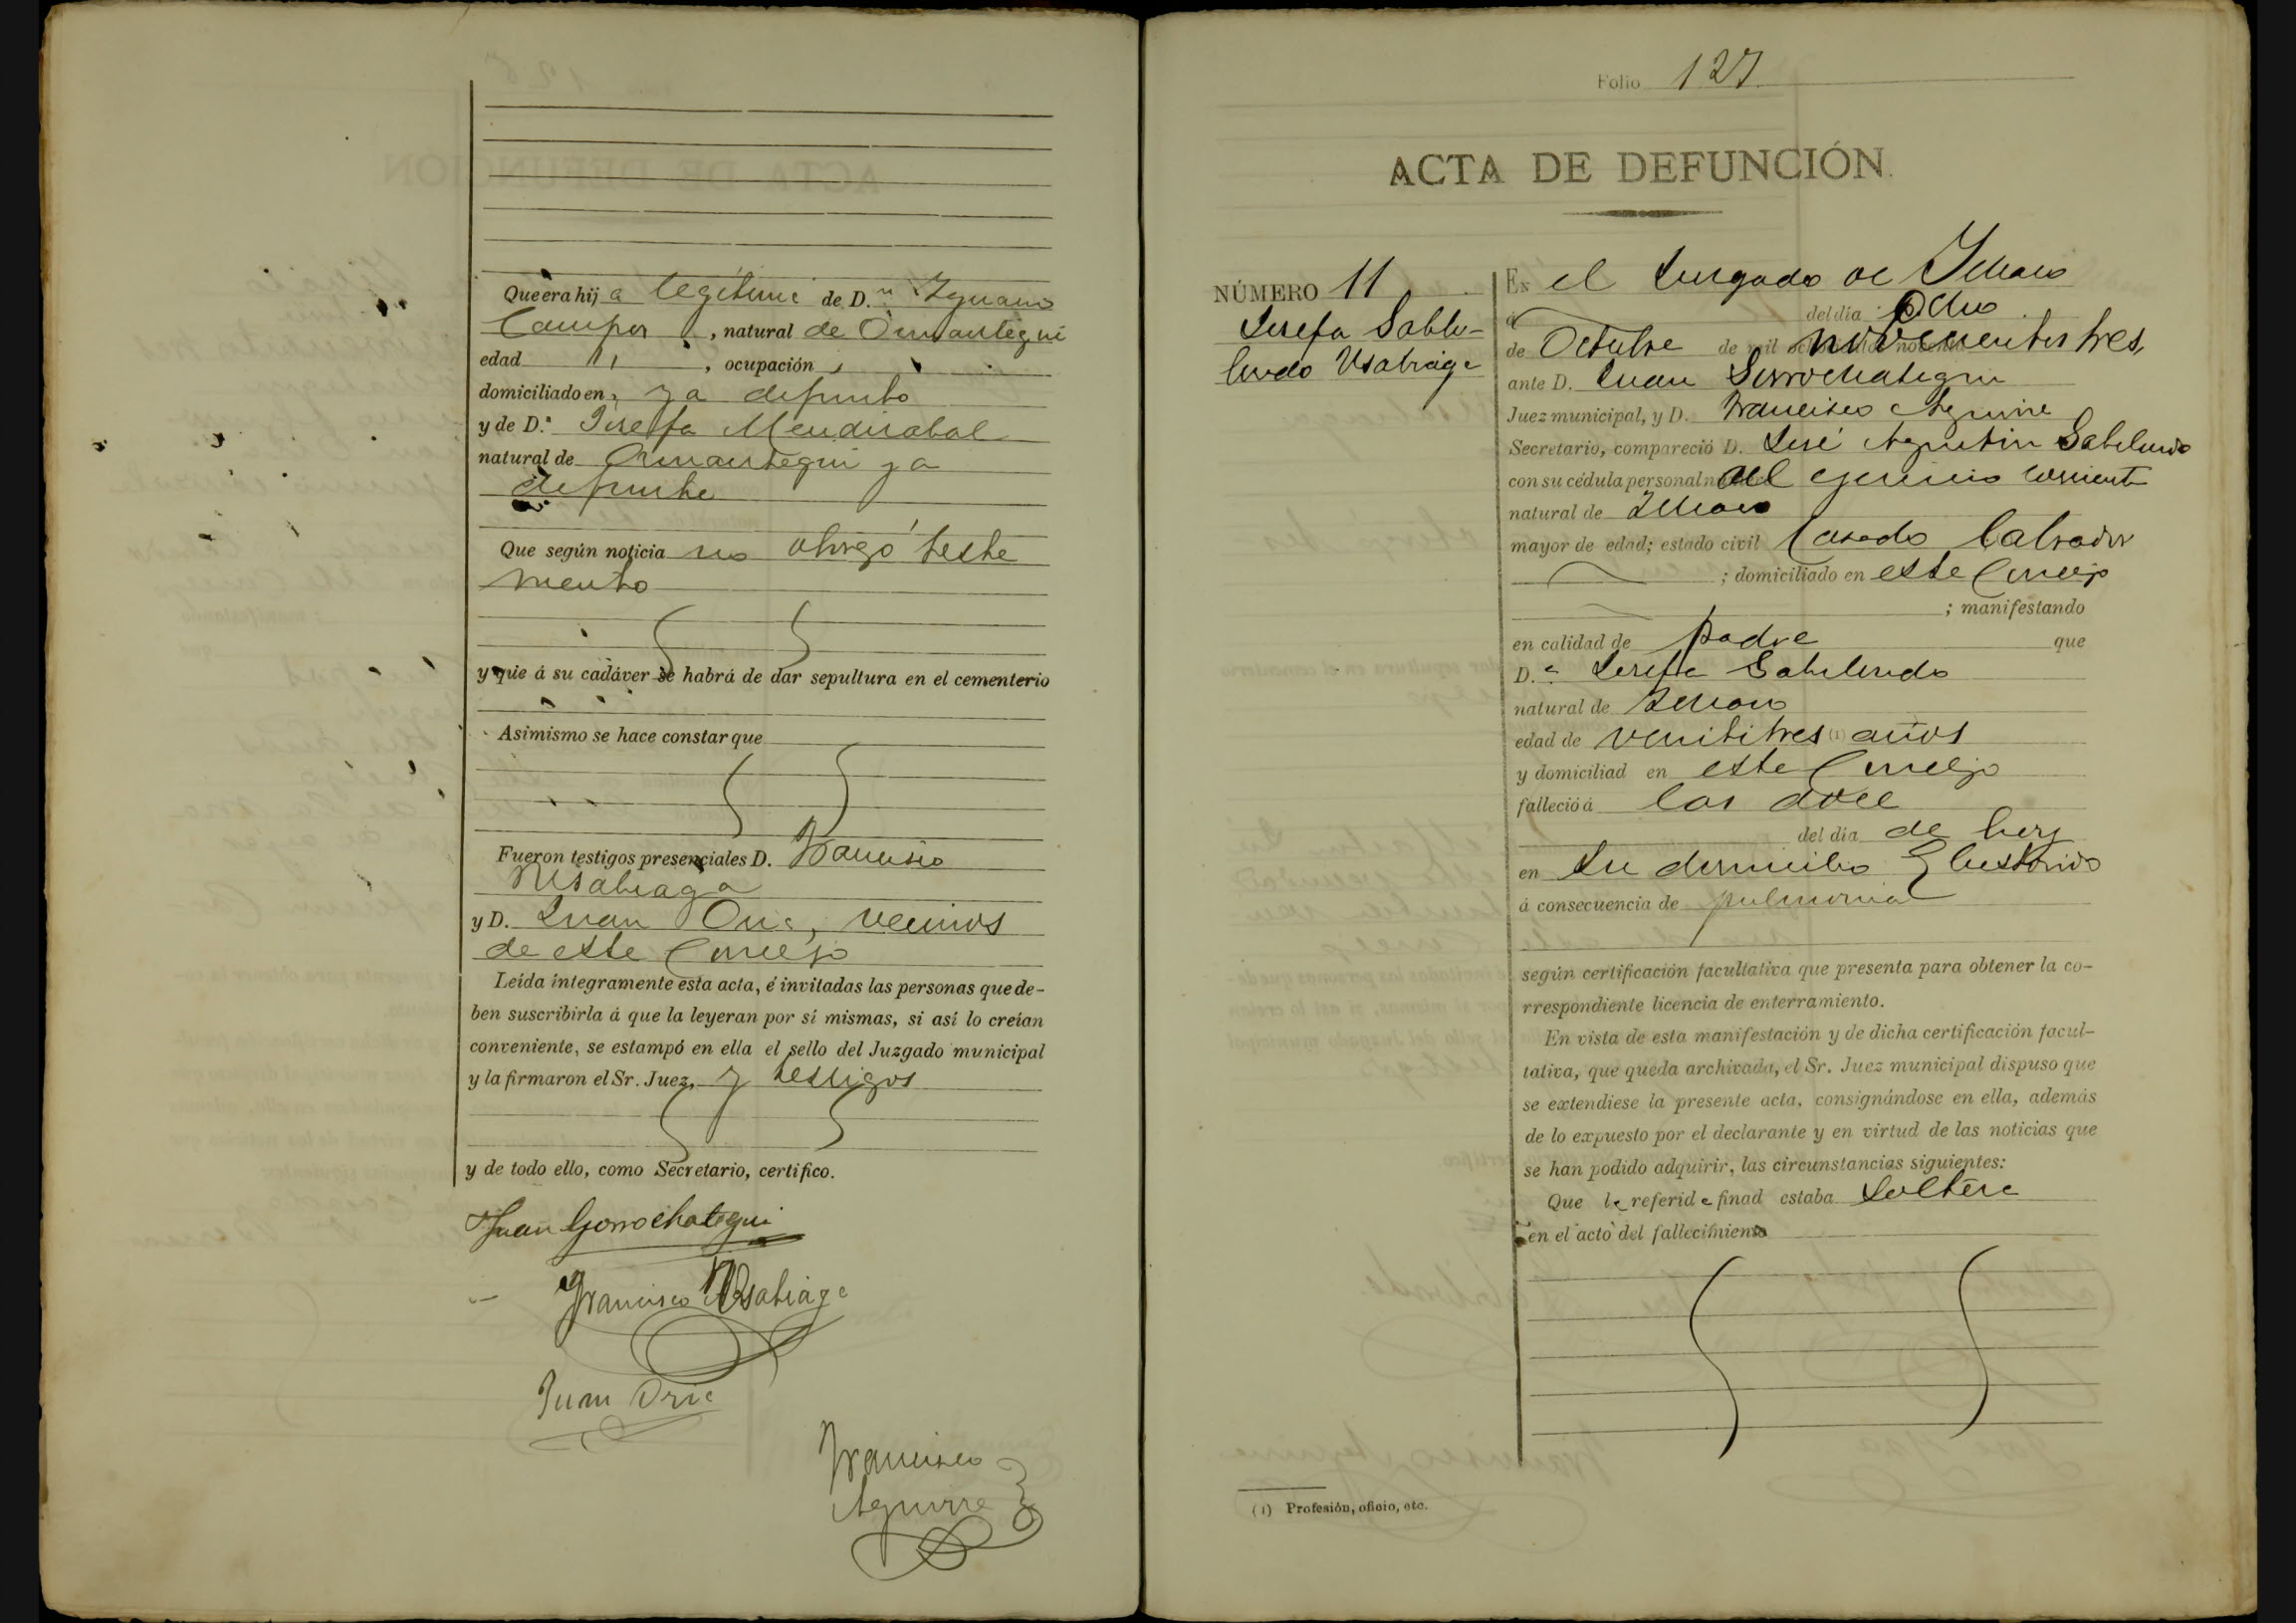 Que era hija legitima de D.n Ignacio
Campos, natural de Ormaiztegui
edad 11, ocupación
domiciliado en ya defunto
y de D.ª Josefa Mendizabal
natural de Ormaiztegui ya
defunta
Que según noticia no otorgó testa
mento
y que á su cadáver se habrá de dar sepultura en el cementerio
Asimismo se hace constar que
Fueron testigos presenciales D. Francisco
Usabiaga
y D. Juan Oria, vecinos
de este Concejo
Leída íntegramente esta acta, é invitadas las personas que de-
ben suscribirla á que la leyeran por sí mismas, si así lo creían
conveniente, se estampó en ella el sello del Juzgado municipal
y la firmaron el Sr. Juez, y testigos
y de todo ello, como Secretario, certifico.
Juan Gorrochategui
Francisco Usabiaga
Juan Oria
Francisco
Aguirre
Folio 127
ACTA DE DEFUNCIÓN.
NÚMERO 11
Josefa
Usabiaga
En el Juzgado de Ichaso
á del dia Ocho
de Octubre de mil novecientos tres,
ante D. Juan Gorrochategui
Juez municipal, y D. Francisco Aguirre
Secretario, compareció D. José Agustin
con su cédula personal del ejercicio corriente
natural de Ichaso
mayor de edad; estado civil Casado labrador
; domiciliado en este Concejo
; manifestando
en calidad de padre que
D.ª Josefa
natural de Ichaso
edad de veintitres (1) años
y domiciliad en este Concejo
falleció á las doce
del dia de hoy
en su domicilio
á consecuencia de pulmonia
según certificación facultativa que presenta para obtener la co-
rrespondiente licencia de enterramiento.
En vista de esta manifestación y de dicha certificación facul-
tativa, que queda archivada, el Sr. Juez municipal dispuso que
se extendiese la presente acta, consignándose en ella, además
de lo expuesto por el declarante y en virtud de las noticias que
se han podido adquirir, las circunstancias siguientes:
Que la referida finad estaba soltera
en el acto del fallecimiento
(1) Profesión, oficio, etc.